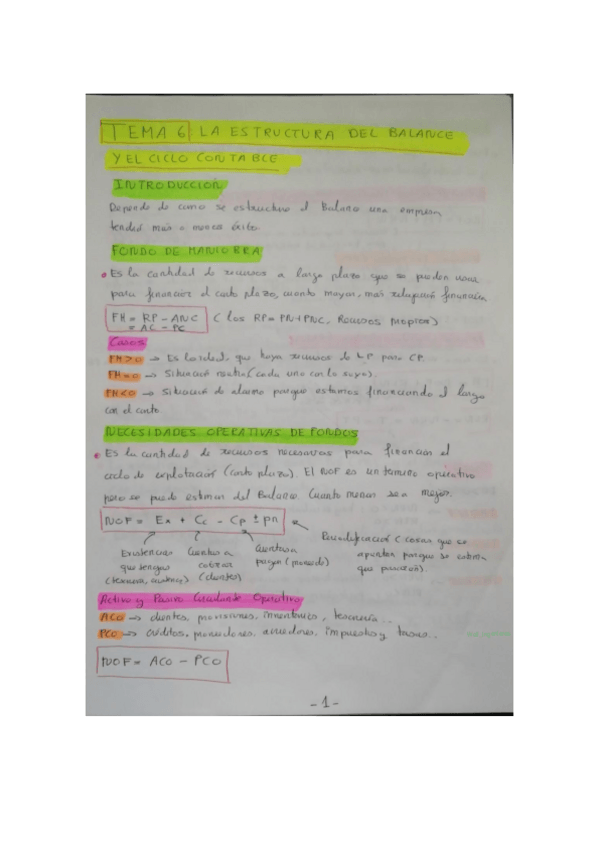 TEMA 6 LA ESTRUCTURA DEL BALANCE
Y EL CICLO CONTABLE
INTRODUCCIÓN
Depende de como se estructure el Balance una empresa
tendrá más o menos éxito.
FONDO DE MANIOBRA
• Es la cantidad de recursos a largo plazo que se pueden usar
para financiar el corto plazo, cuanto mayor, más relajación financiera
FM = RP - ANC (los RP = PN + PNC, Recursos propios)
= AC - PC
Casos
FM > 0 → Es lo ideal, que haya recursos de LP para CP.
FM = 0 → Situación neutra (cada uno con lo suyo).
FM < 0 → Situación de alarma porque estamos financiando el largo
con el corto.
NECESIDADES OPERATIVAS DE FONDOS
• Es la cantidad de recursos necesarios para financiar el
ciclo de explotación (corto plazo). El NOF es un término operativo
pero se puede estimar del Balance. Cuanto menos sea mejor.
NOF = Ex + Cc - Cp ± pn
Periodificación (cosas que se
apuntan porque se sabe
que pasarán).
Existencias que tengas
Cuentas a cobrar (clientes)
Cuentas a pagar (proveedo)
Activo y Pasivo Circulante Operativo
ACO → clientes, provisiones, inventarios, tesorería...
PCO → créditos, proveedores, acreedores, impuestos y tasas...
NOF = ACO - PCO
- 1 -